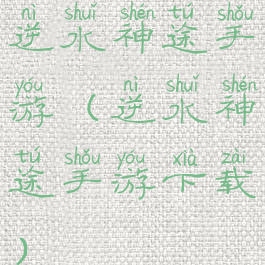 nì shuǐ shén tú shǒu
逆水神途手
yóu nì shuǐ shén
游(逆水神
tú shǒu yóu xià zài
途手游下载
)